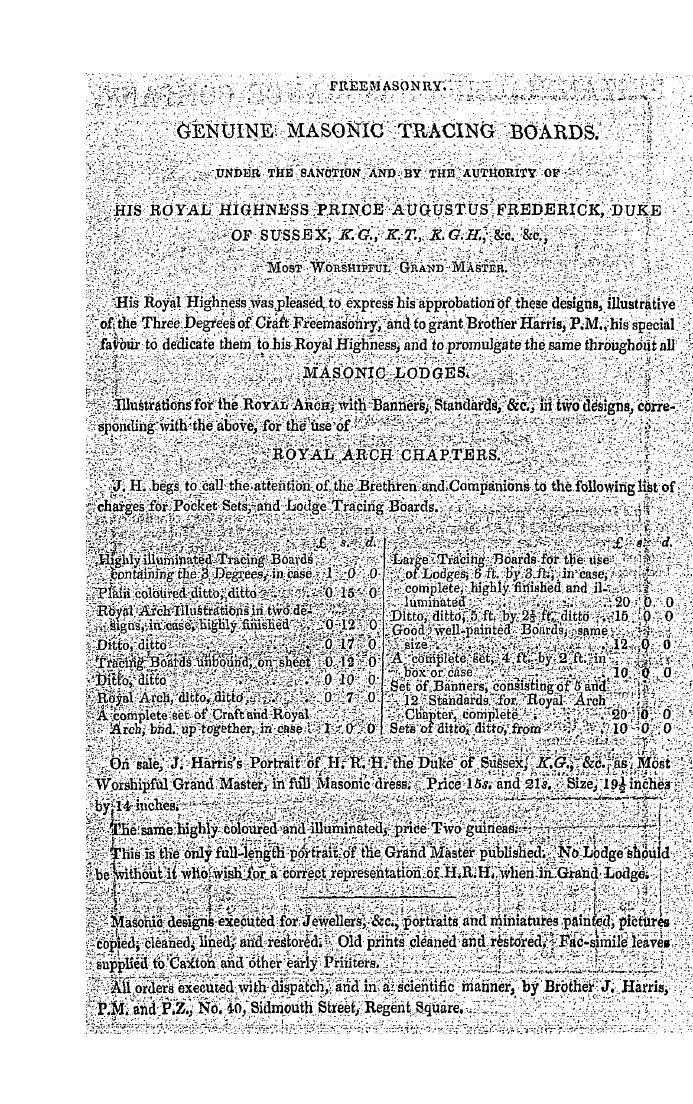 FREEMASONRY.
GENUINE MASONIC TRACING BOARDS.
UNDER THE SANCTION AND BY THE AUTHORITY OF
HIS ROYAL HIGHNESS PRINCE AUGUSTUS FREDERICK, DUKE
OF SUSSEX, K.G., K.T., K.G.H., &c. &c.,
MOST WORSHIPFUL GRAND MASTER.
His Royal Highness was pleased to express his approbation of these designs, illustrative
of the Three Degrees of Craft Freemasonry, and to grant Brother Harris, P.M., his special
favour to dedicate them to his Royal Highness, and to promulgate the same throughout all
MASONIC LODGES.
Illustrations for the ROYAL ARCH, with Banners, Standards, &c., in two designs, corre-
sponding with the above, for the use of
ROYAL ARCH CHAPTERS.
J. H. begs to call the attention of the Brethren and Companions to the following list of
charges for Pocket Sets, and Lodge Tracing Boards.
£ s. d.
Highly illuminated Tracing Boards
containing the 3 Degrees, in case 1 0 0
Plain coloured ditto, ditto 0 15 0
Royal Arch Illustrations in two de-
signs, in case, highly finished 0 12 0
Ditto, ditto 0 17 0
Tracing Boards unbound, on sheet 0 12 0
Ditto, ditto 0 10 0
Royal Arch, ditto, ditto 0 7 0
A complete set of Craft and Royal
Arch, bnd. up together, in case 1 0 0
£ s. d.
Large Tracing Boards for the use
of Lodges, 6 ft. by 3 ft., in case,
complete, highly finished and il-
luminated 20 0 0
Ditto, ditto, 5 ft. by 2½ ft. ditto 15 0 0
Good well-painted Boards, same
size 12 0 0
A complete set, 4 ft. by 2 ft. in
box or case 10 0 0
Set of Banners, consisting of 5 and
12 Standards for Royal Arch
Chapter, complete 20 0 0
Sets of ditto, ditto, from 10 0 0
On sale, J. Harris's Portrait of H. R. H. the Duke of Sussex, K.G., &c. as Most
Worshipful Grand Master, in full Masonic dress. Price 15s. and 21s. Size, 19½ inches
by 14 inches.
The same highly coloured and illuminated, price Two guineas.
This is the only full-length portrait of the Grand Master published. No Lodge should
be without it who wish for a correct representation of H.R.H. when in Grand Lodge.
Masonic designs executed for Jewellers, &c., portraits and miniatures painted, pictures
copied, cleaned, lined, and restored. Old prints cleaned and restored. Fac-simile leaves
supplied to Caxton and other early Printers.
All orders executed with dispatch, and in a scientific manner, by Brother J. Harris,
P.M. and P.Z., No. 40, Sidmouth Street, Regent Square.